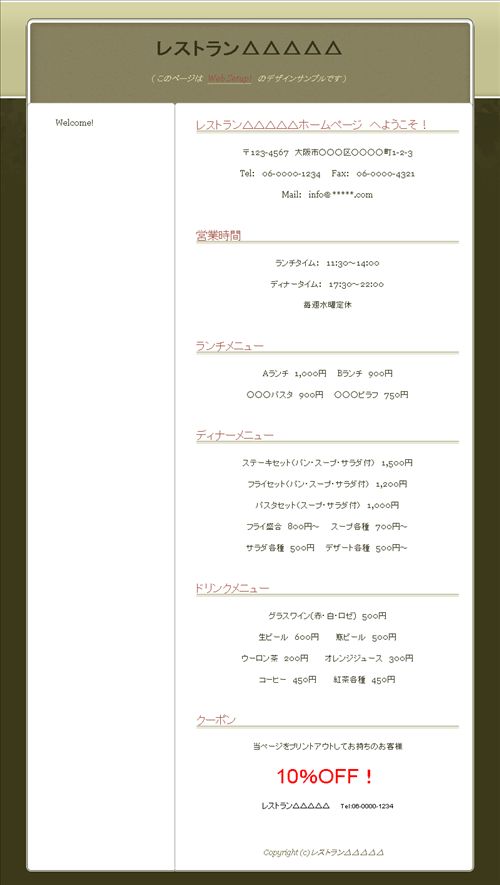 レストラン△△△△△
（このページは Web Setup! のデザインサンプルです）
Welcome!
レストラン△△△△△ホームページ へようこそ！
〒123-4567 大阪市〇〇〇区〇〇〇〇町1-2-3
Tel: 06-0000-1234 Fax: 06-0000-4321
Mail: info@*****.com
営業時間
ランチタイム： 11:30～14:00
ディナータイム： 17:30～22:00
毎週水曜定休
ランチメニュー
Aランチ 1,000円 Bランチ 900円
〇〇〇パスタ 900円 〇〇〇ピラフ 750円
ディナーメニュー
ステーキセット（パン・スープ・サラダ付） 1,500円
フライセット（パン・スープ・サラダ付） 1,200円
パスタセット（スープ・サラダ付） 1,000円
フライ盛合 800円～ スープ各種 700円～
サラダ各種 500円 デザート各種 500円～
ドリンクメニュー
グラスワイン（赤・白・ロゼ） 500円
生ビール 600円 瓶ビール 500円
ウーロン茶 200円 オレンジジュース 300円
コーヒー 450円 紅茶各種 450円
クーポン
当ページをプリントアウトしてお持ちのお客様
10%OFF！
レストラン△△△△△ Tel:06-0000-1234
Copyright (c) レストラン△△△△△